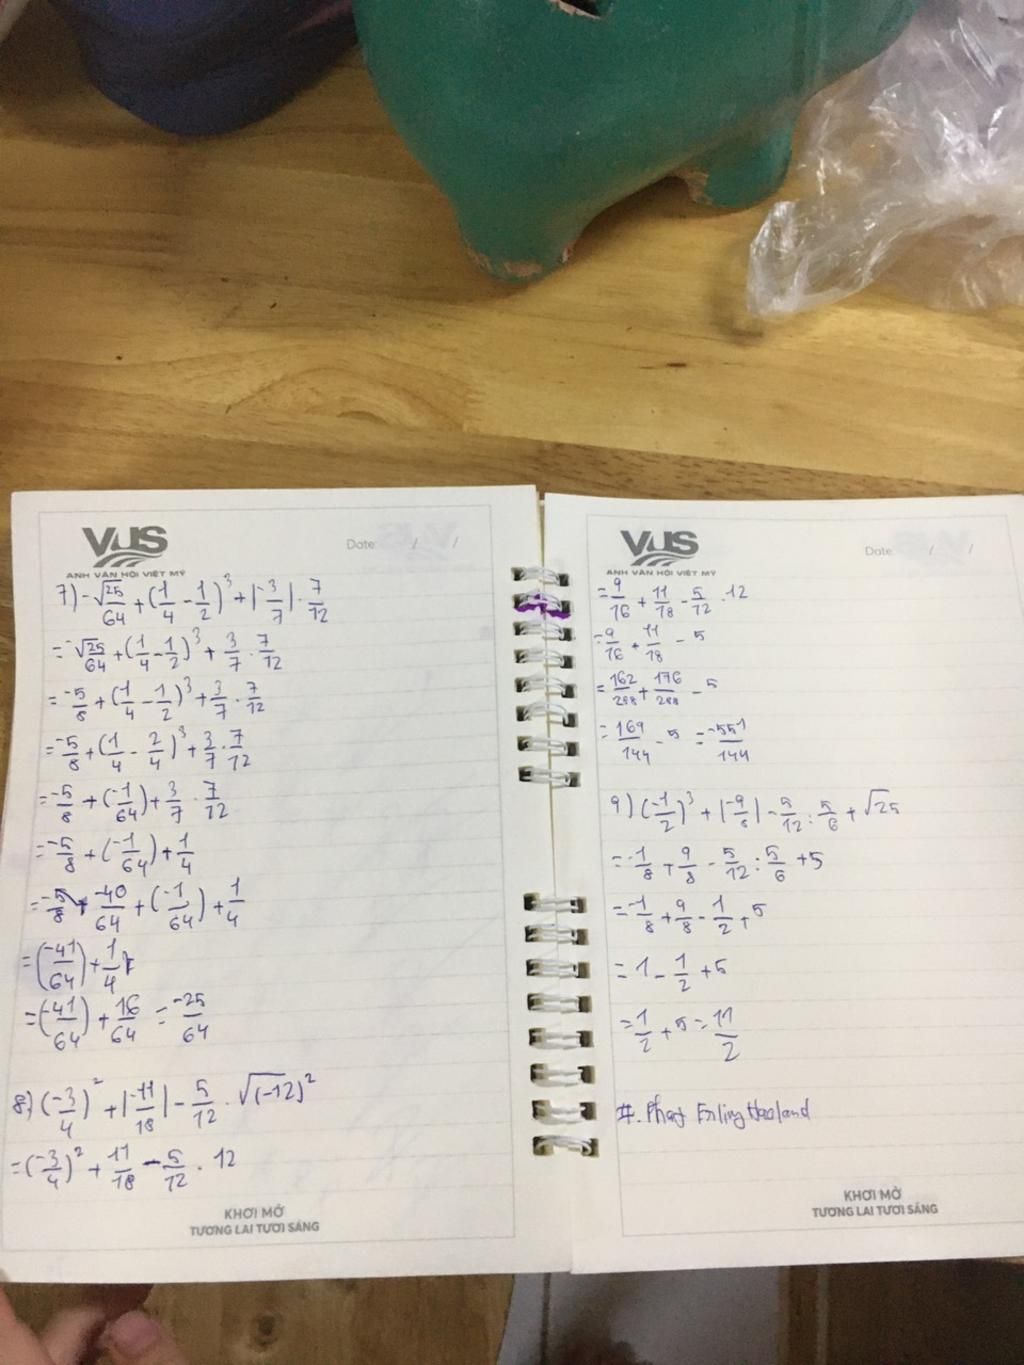 VUS
ANH VĂN HỘI VIỆT MỸ
Date: / /
7) -√25/64 + (1/4 - 1/2)³ + |-3/7| . 7/12
= -√25/64 + (1/4 - 1/2)³ + 3/7 . 7/12
= -5/8 + (1/4 - 1/2)³ + 3/7 . 7/12
= -5/8 + (1/4 - 2/4)³ + 3/7 . 7/12
= -5/8 + (-1/64) + 3/7 . 7/12
= -5/8 + (-1/64) + 1/4
= -40/64 + (-1/64) + 1/4
= (-41/64) + 1/4
= (-41/64) + 16/64 = -25/64
8) (-3/4)² + |-11/18| - 5/12 . √(-12)²
= (-3/4)² + 11/18 - 5/12 . 12
KHƠI MỞ
TƯƠNG LAI TƯƠI SÁNG
VUS
ANH VĂN HỘI VIỆT MỸ
Date: / /
= 9/16 + 11/18 - 5/12 . 12
= 9/16 + 11/18 - 5
= 162/288 + 176/288 - 5
= 169/144 - 5 = -551/144
9) (-1/2)³ + |-9/8| - 5/12 : 5/6 + √25
= -1/8 + 9/8 - 5/12 : 5/6 + 5
= -1/8 + 9/8 - 1/2 + 5
= 1 - 1/2 + 5
= 1/2 + 5 = 11/2
#. Phat Erling Haaland
KHƠI MỞ
TƯƠNG LAI TƯƠI SÁNG